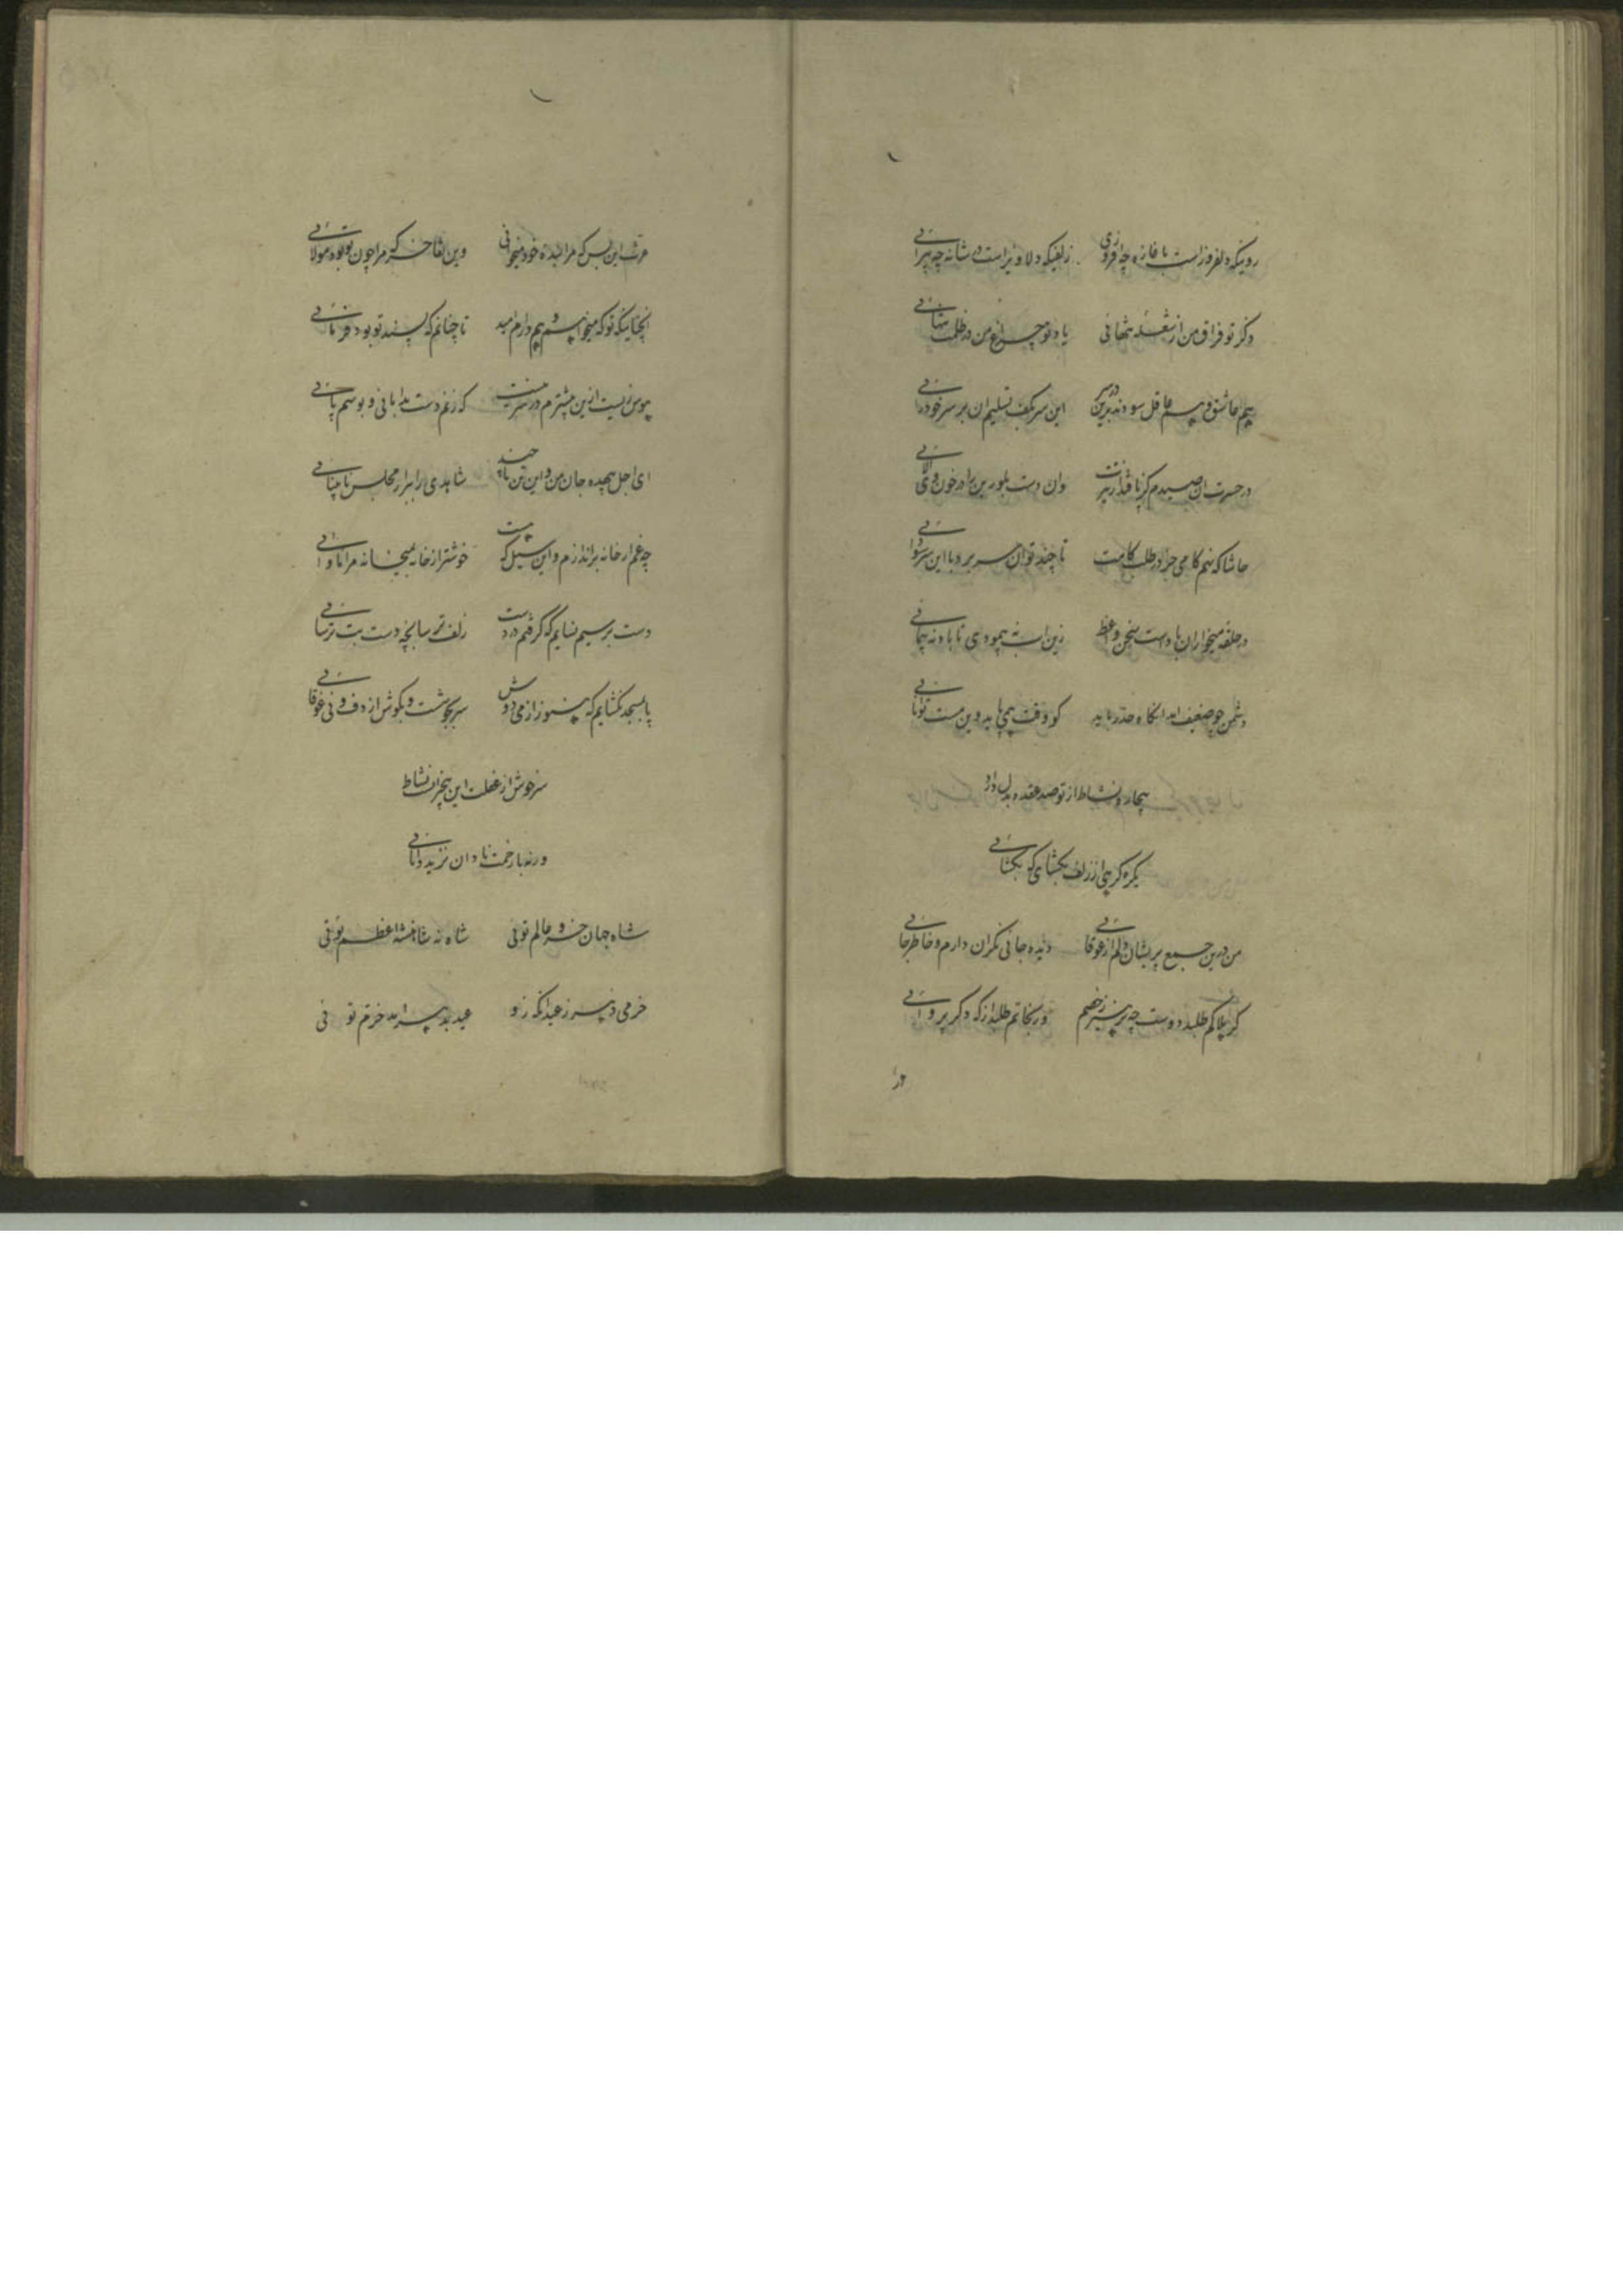 رویکه دلفروز است با غازه چه افروزی زلفیکه دلاویز است بشانه چه پیرائی
ذکر تو فراق من از شغل تنهائی یاد تو چراغ من در ظلمت تنهائی
هم عاشق و هم عاقل سودند درین در سر این سر بکف تسلیم ان بر سر خودرائی
در حسرت ان صیدم کز پا فتد از تیرت وان دست بلورین را در خون وی الائی
حاشا که نهم کامی جز در طلب کامت تا چند توان سر برد با این سر سودائی
در حلقه میخواران باد است سخن واعظ زین راست نه پیمودی تا باد نه پیمائی
دشمن چو ضعیف اید انگاه حذر باید
بیچاره نشاط از تو صد عقده بدل دارد
یکره گرهی از زلف بگشای که بگشائی
من درین جمع پریشان دلم از غوغائی دیده جائی نگران دارم و خاطر جائی
گر هلاکم طلبد دوست چه پرهیز ز خصم ور نجاتم طلبد از که دگر پروائی
عزت این بس که مرا بنده خود میخوانی وین تفاخر که مرا چون تو بود مولائی
انچنانیکه تو که میخواهم و هم دارم امید تا چنانم که پسند تو بود فرمائی
هوس نیست ازین بیشترم در سر مست که زنم دست بدامانی و بوسم پائی
ای اجل همچو جان من و این تن تا چند شاهدی را ببر از مجلس نابینائی
چه غم ار خانه براندازم و این سیل که هست خوشتر از خانه بمیخانه مرا ماوائی
دست بر سیم نسایم که گرفتم در دست زلف ترسا بچه دست بت ترسائی
پا بمسجد نگشایم که هنوز از می دوش سر بجوشست و بگوش از دف و نی غوغائی
سر خوش از غفلت این بیخبرانست نشاط
ورنه با زحمت نادان نزید دانائی
شاه جهان خسرو عالم توئی شاه نه شاهنشه اعظم توئی
خرمی دهر ز عید انکه زو عید بدهر امد خرم توئی